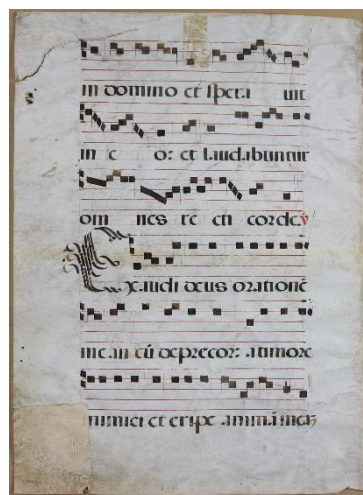 in domino et spera uit
in e o: et laudabuntur
om nes re cti corde. ꝟ
Exaudi deus orationē
meam cū deprecor: a timore
inimici et eripe animā meā